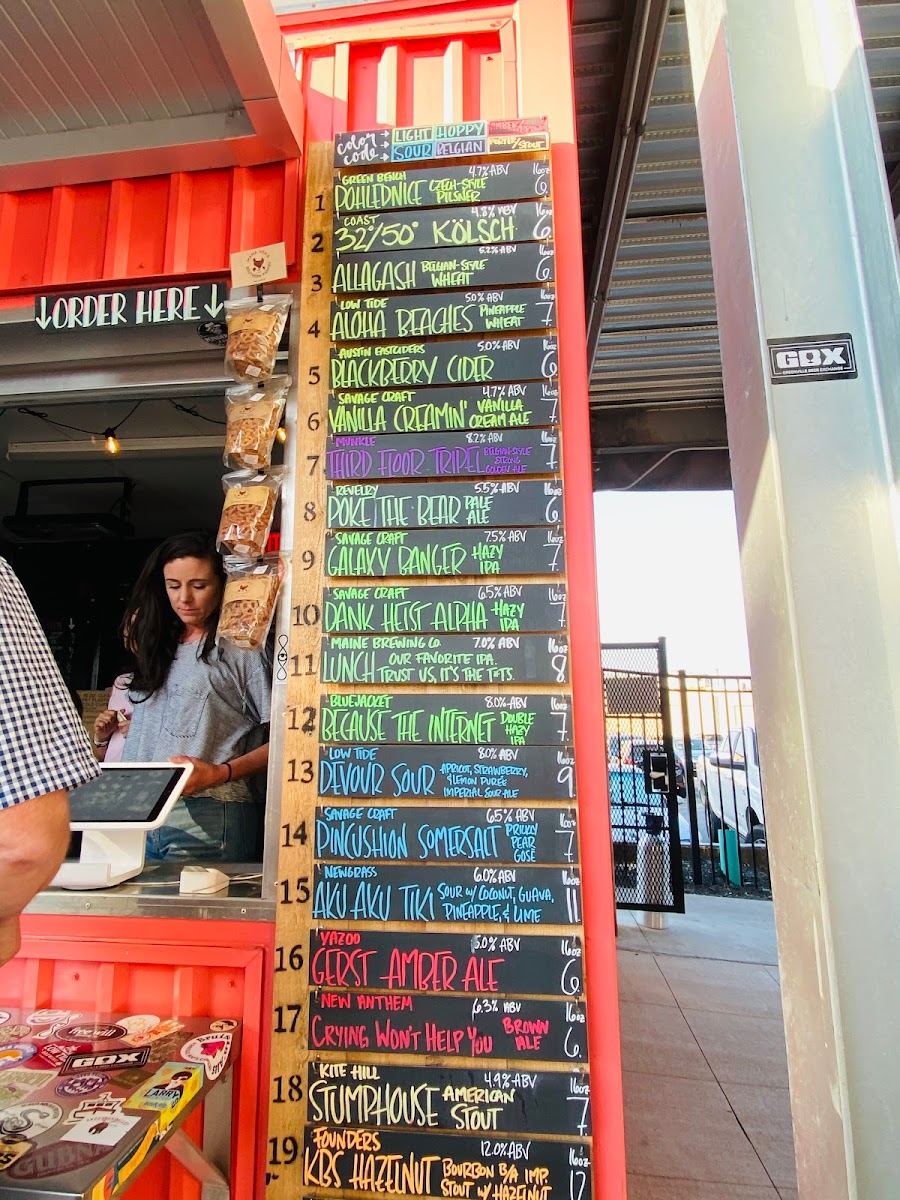 color code → LIGHT HOPPY AMBER
SOUR BELGIAN PORTER/STOUT
↓ORDER HERE↓
1 GREEN BENCH 4.7% ABV 16oz
POHLEDNICE CZECH-STYLE PILSNER 6
2 COAST 4.8% ABV 16oz
32°/50° KÖLSCH 6
3 5.2% ABV 16oz
ALLAGASH BELGIAN-STYLE WHEAT 6
4 LOW TIDE 5.0% ABV 16oz
ALOHA BEACHES PINEAPPLE WHEAT 7
5 AUSTIN EASTCIDERS 5.0% ABV 16oz
BLACKBERRY CIDER 6
6 SAVAGE CRAFT 4.7% ABV 16oz
VANILLA CREAMIN' VANILLA CREAM ALE 7
7 MUNKLE 8.2% ABV 16oz
THIRD FLOOR TRIPEL BELGIAN-STYLE STRONG GOLDEN ALE 7
8 REVELRY 5.5% ABV 16oz
POKE THE BEAR PALE ALE 6
9 SAVAGE CRAFT 7.5% ABV 16oz
GALAXY BANGER HAZY IPA 7
10 SAVAGE CRAFT 6.5% ABV 16oz
DANK HEIST ALPHA HAZY IPA 7
11 MAINE BREWING CO. 7.0% ABV 16oz
LUNCH OUR FAVORITE IPA. TRUST US, IT'S THE T*TS. 8
12 BLUEJACKET 8.0% ABV 16oz
BECAUSE THE INTERNET DOUBLE HAZY IPA 7
13 LOW TIDE 8.0% ABV 16oz
DEVOUR SOUR APRICOT, STRAWBERRY, & LEMON PUREE IMPERIAL SOUR ALE 9
14 SAVAGE CRAFT 6.5% ABV 16oz
PINCUSHION SOMERSALT PRICKLY PEAR GOSE 7
15 NEWGRASS 6.0% ABV 16oz
AKU AKU TIKI SOUR W/ COCONUT, GUAVA, PINEAPPLE, & LIME 11
16 YAZOO 5.0% ABV 16oz
GERST AMBER ALE 6
17 NEW ANTHEM 6.3% ABV 16oz
CRYING WON'T HELP YOU BROWN ALE 6
18 KITE HILL 4.9% ABV 16oz
STUMPHOUSE AMERICAN STOUT 7
19 FOUNDERS 12.0% ABV 16oz
KBS HAZELNUT BOURBON B/A IMP. STOUT W/ HAZELNUT 12
GBX
GREENVILLE BEER EXCHANGE
freewill
GBX
LARRY